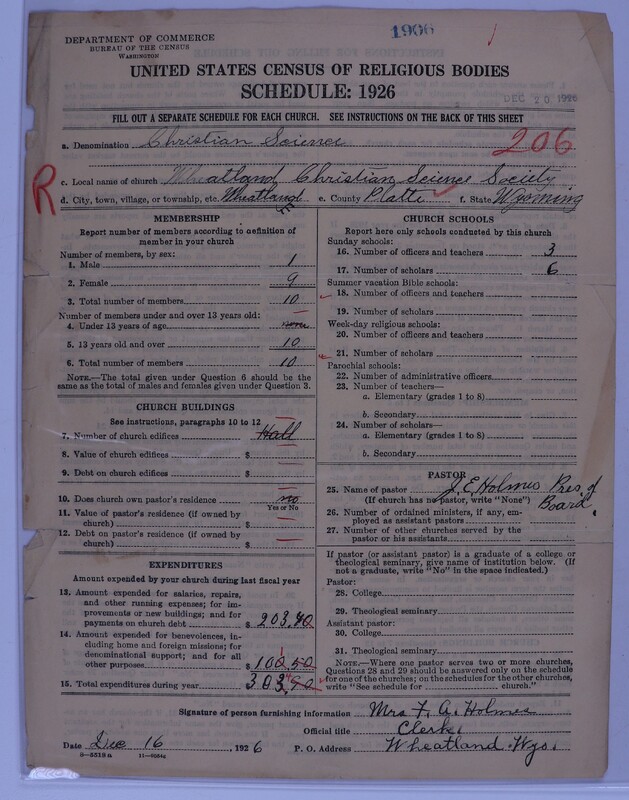 1906
DEPARTMENT OF COMMERCE
BUREAU OF THE CENSUS
WASHINGTON
UNITED STATES CENSUS OF RELIGIOUS BODIES
SCHEDULE: 1926
DEC 20 1926
FILL OUT A SEPARATE SCHEDULE FOR EACH CHURCH. SEE INSTRUCTIONS ON THE BACK OF THIS SHEET
a. Denomination Christian Science
206
R
c. Local name of church Wheatland Christian Science Society
d. City, town, village, or township, etc. Wheatland e. County Platte f. State Wyoming
MEMBERSHIP
Report number of members according to definition of
member in your church
Number of members, by sex:
1. Male 1
2. Female 9
3. Total number of members 10
Number of members under and over 13 years old:
4. Under 13 years of age none
5. 13 years old and over 10
6. Total number of members 10
NOTE.—The total given under Question 6 should be the
same as the total of males and females given under Question 3.
CHURCH BUILDINGS
See instructions, paragraphs 10 to 12
7. Number of church edifices Hall
8. Value of church edifices $
9. Debt on church edifices $
10. Does church own pastor's residence no
Yes or No
11. Value of pastor's residence (if owned by
church) $
12. Debt on pastor's residence (if owned by
church) $
EXPENDITURES
Amount expended by your church during last fiscal year
13. Amount expended for salaries, repairs,
and other running expenses; for im-
provements or new buildings; and for
payments on church debt $ 203.40
14. Amount expended for benevolences, in-
cluding home and foreign missions; for
denominational support; and for all
other purposes $ 100.50
15. Total expenditures during year 303.90
CHURCH SCHOOLS
Report here only schools conducted by this church
Sunday schools:
16. Number of officers and teachers 3
17. Number of scholars 6
Summer vacation Bible schools:
18. Number of officers and teachers
19. Number of scholars
Week-day religious schools:
20. Number of officers and teachers
21. Number of scholars
Parochial schools:
22. Number of administrative officers
23. Number of teachers—
a. Elementary (grades 1 to 8)
b. Secondary
24. Number of scholars—
a. Elementary (grades 1 to 8)
b. Secondary
PASTOR
25. Name of pastor J. E. Holmes Pres. of
(If church has no pastor, write "None") Board.
26. Number of ordained ministers, if any, em-
ployed as assistant pastors
27. Number of other churches served by the
pastor or his assistants
If pastor (or assistant pastor) is a graduate of a college or
theological seminary, give name of institution below. (If
not a graduate, write "No" in the space indicated.)
Pastor:
28. College
29. Theological seminary
Assistant pastor:
30. College
31. Theological seminary
NOTE.—Where one pastor serves two or more churches,
Questions 28 and 29 should be answered only on the schedule
for one of the churches; on the schedules for the other churches,
write "See schedule for church."
Signature of person furnishing information Mrs F. A. Holmes
Official title Clerk.
Date Dec 16, 1926 P. O. Address Wheatland Wyo.
8—5519a 11—9064g